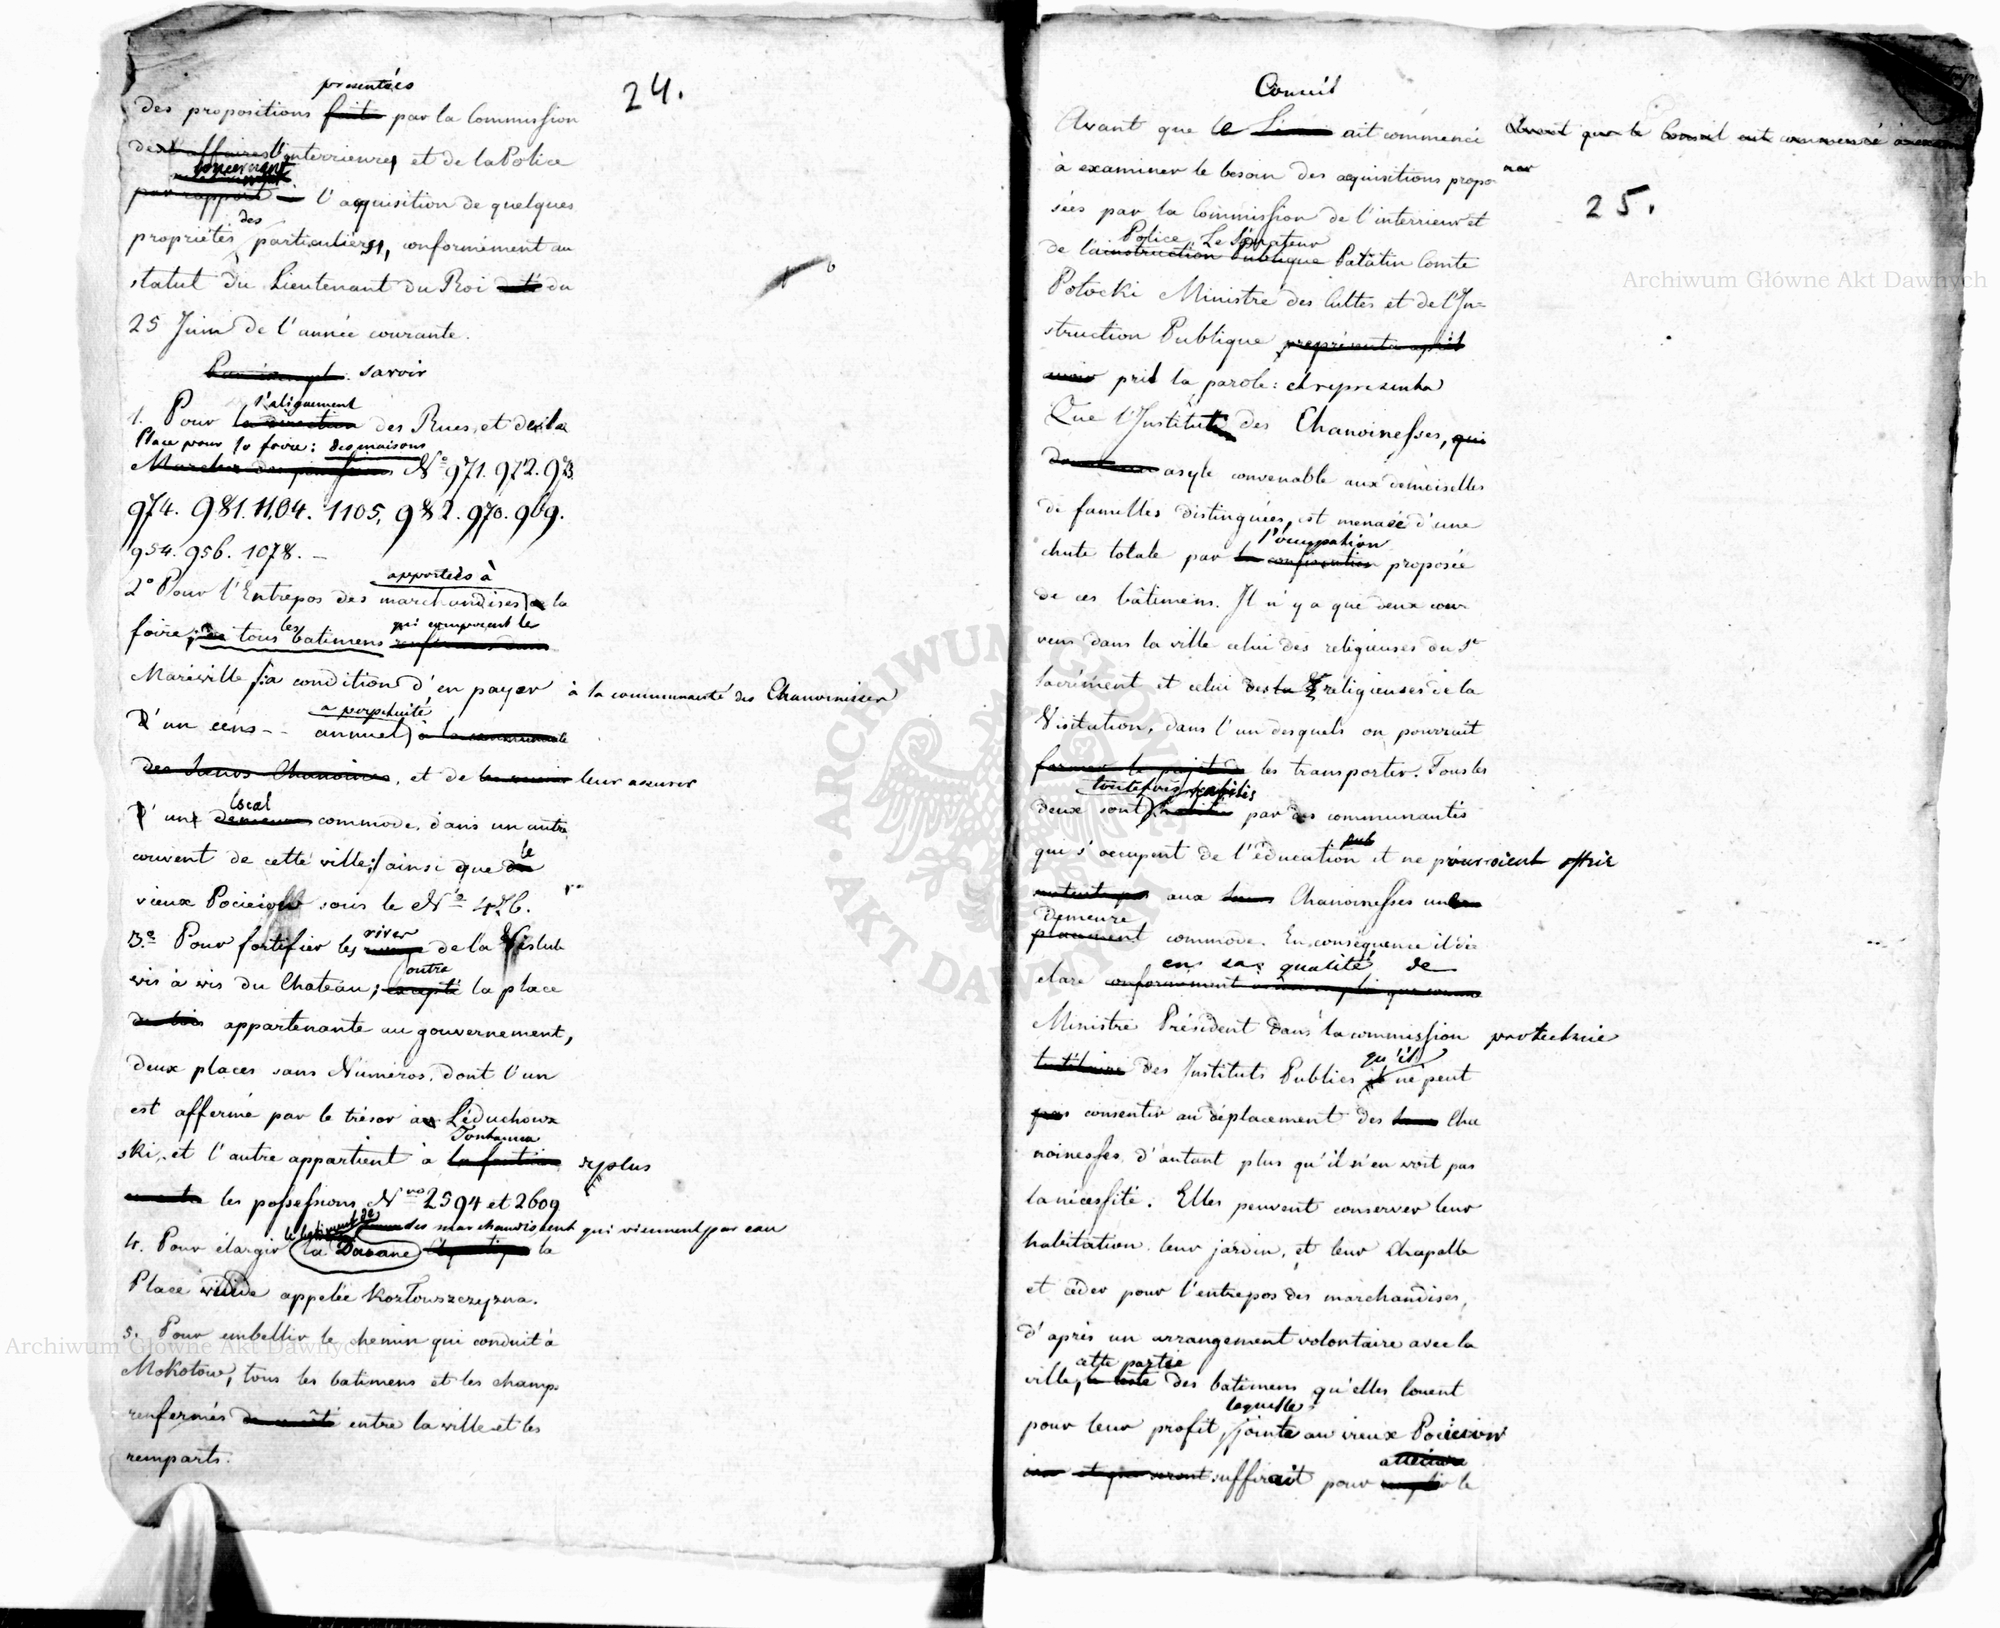 24.
presentées
des propositions faite par la Commission
des affaires l'interrieures et de la Police
concernant
par rapport l'aquisition de quelques
des
proprietés particuliers, conformément au
statut du Lieutenant du Roi daté du
25 Juin de l'année courante.
savoir
l'alignement
1. Pour la direction des Rues, et de la
Place pour la foire: des maisons
Marché N° 971. 972. 973.
974. 981. 1104. 1105, 982. 970. 969.
954. 956. 1078. –
apportées à
2° Pour l'Entrepos des marchandises) la
les qui composent le
foire; tous batimens renfermés dans
Mariéville /:a condition d'en payer à la communauté des Chanoinesses
a perpetuité
D'un cens -- annuel) à la communauté
des Chanoines, et de leur assurer
local
d'un demeure commode, dans un autre
le
couvent de cette ville:/ ainsi que
vieux Pocieiow sous le N° 476.
river
3.° Pour fortifier les de la Vistule
outre
vis à vis du Chateau; excepté la place
du bois appartenante au gouvernement,
deux places sans Numéros, dont l'un
est affermé par le trésor à Léduchows
Fontanna
ski, et l'autre appartient à la
les possessions N 2594 et 2609
le batiment de des marchandises qui viennent par eau
4. Pour élargir la Douane la
Place vuide appelée Kozłowszczyzna.
5. Pour embellir le chemin qui conduit à
Mokotow, tous les batimens et les champs
renfermés du coté entre la ville et les
remparts.
25.
Conseil
Avant que le ait commencé Avant que le Conseil ait commencé à exami
à examiner le besoin des aquisitions propo ner
sées par la Commission de l'interrieur et
Police, Le Sénateur
de l'ainstruction Publique Palatin Comte
Potocki Ministre des Cultes et de l'In=
struction Publique représenta après
avoir prit la parole: et representa
Que l'Institut des Chanoinesses, qui
asyle convenable aux demoiselles
de familles distinguées, est menacé d'une
l'occupation
chute totale par la proposée
de ces bâtimens. Il n'y a que deux cou
vens dans la ville celui des religieuses du St
Sacrément et celui des réligieuses de la
Visitation, dans l'un desquels on pourrait
former le projet de les transporter. Tous les
toutefois
deux sont par des communautés
qui s'occupent de l'éducation et ne pourroient offrir
aux Chanoinesses un
demeure
placement commode. En conséquence il dé
en sa qualité de
clare conformement
Ministre Président dans la commission protectrice
qu'il
des Instituts Publics il ne peut
pas consentir au déplacement des Cha
noinesses, d'autant plus qu'il n'en voit pas
la nécessité. Elles peuvent conserver leur
habitation, leur jardin, et leur Chapelle
et céder pour l'entrepos des marchandises,
d'après un arrangement volontaire avec la
cette partie
ville, le reste des batimens qu'elles louent
laquelle
pour leur profit, jointe au vieux Pocieiow
et qui seront suffirait pour le
Archiwum Główne Akt Dawnych
Archiwum Główne Akt Dawnych
ARCHIWUM GŁÓWNE AKT DAWNYCH